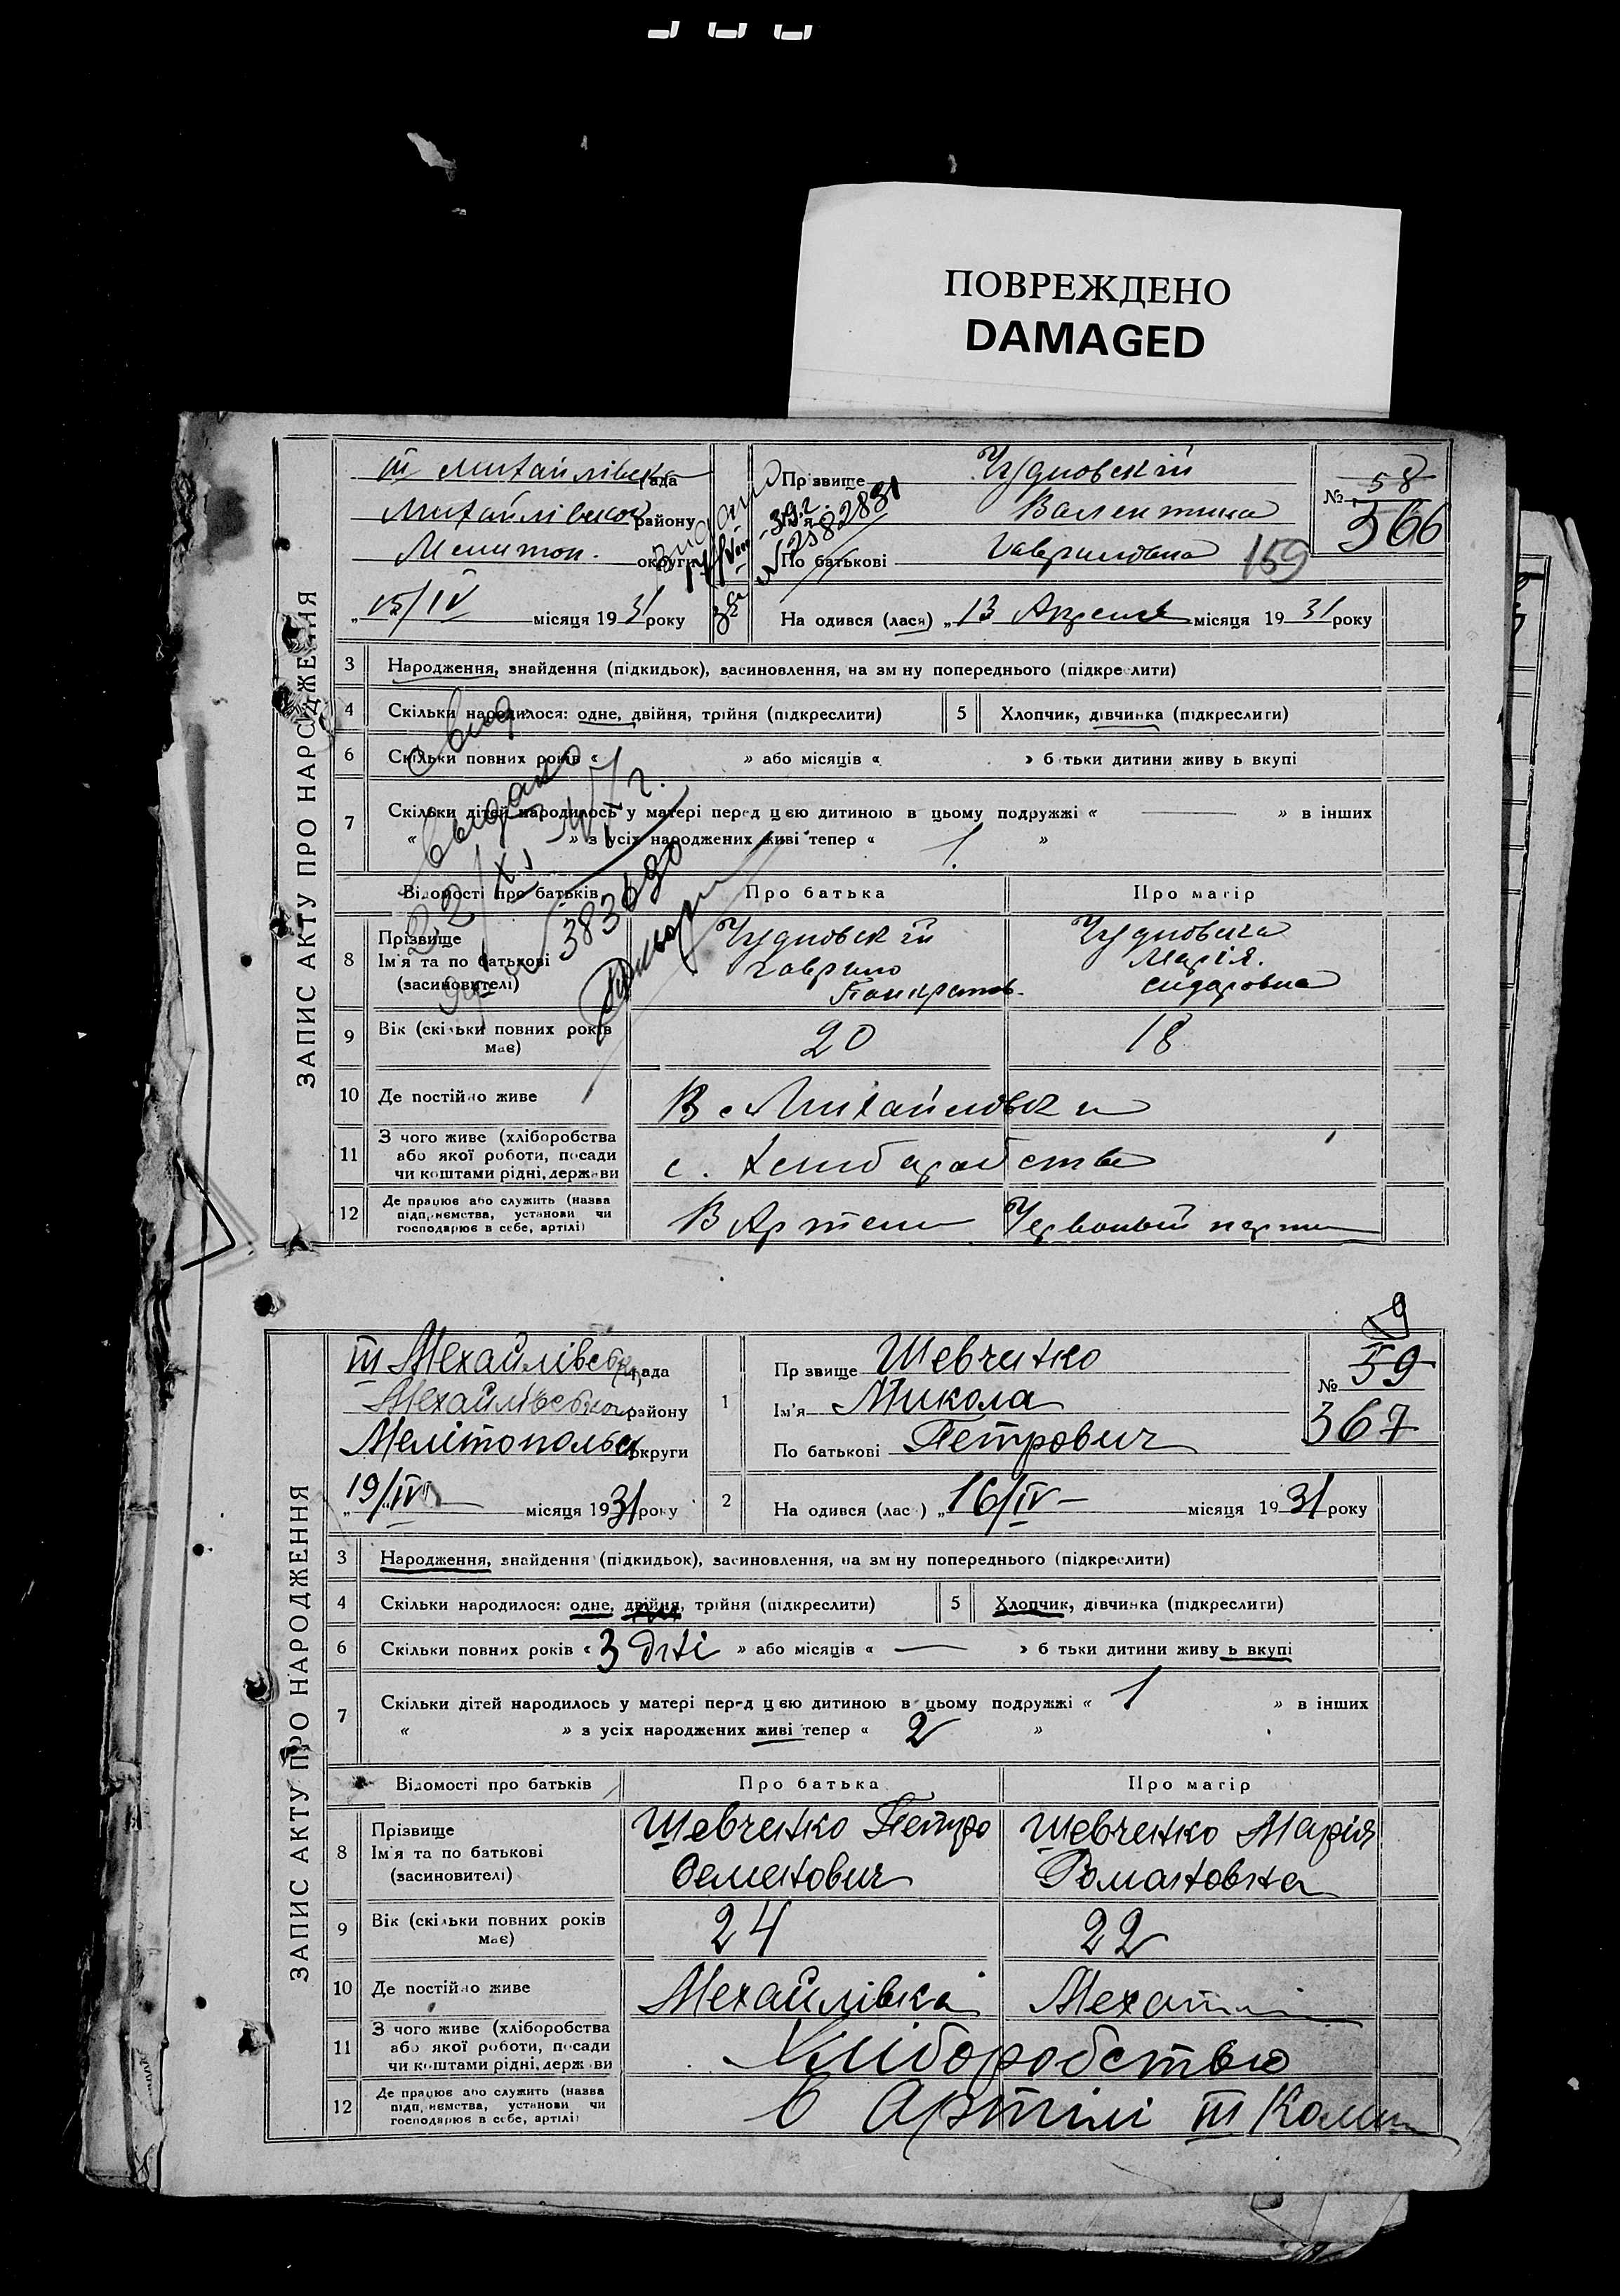 ПОВРЕЖДЕНО
DAMAGED
ЗАПИС АКТУ ПРО НАРОДЖЕННЯ
ІІІ Михайлівска рада
Михайлівской району
Мелитоп. округи
„15/IV місяця 1931 року
Прізвище Чудновскій
Ім'я Валентина
По батькові Гавриловна
159
№ 58
366
Видано
39 г.
2582831
На одився (лася) „13 Апреля місяця 1931 року
3 Народження, знайдення (підкидьок), засиновлення, на зм ну попереднього (підкреслити)
4 Скільки народилося: одне, двійня, трійня (підкреслити)
5 Хлопчик, дівчинка (підкреслити)
6 Скільки повних років « » або місяців « » б тьки дитини живу ь вкупі
7 Скільки дітей народилось у матері перед цією дитиною в цьому подружжі « — » в інших
« » з усіх народжених живі тепер « 1 »
свид
выдано
383690
Відомості про батьків
Про батька
Про матір
8 Прізвище
Ім'я та по батькові
(засиновителі)
Чудновскій
Гаврило
Панкратов.
Чудновска
Марія.
Сидаровна
9 Вік (скільки повних років
має)
20
18
10 Де постійно живе
В с Михайловки
11 З чого живе (хліборобства
або якої роботи, посади
чи коштами рідні, держави
с. Хлибаробства
12 Де працює або служить (назва
підприємства, установи чи
господарює в себе, артілі)
В Артели Червоный
ЗАПИС АКТУ ПРО НАРОДЖЕННЯ
ІІІ Мехайлівська рада
Мехайлівського району
Мелітопольск округи
„19/IV місяця 1931 року
1
Пр звище Шевченко
Ім'я Микола
По батькові Петрович
9
№ 59
367
2 На одився (лас ) „16/IV — місяця 1931 року
3 Народження, знайдення (підкидьок), засиновлення, на зм ну попереднього (підкреслити)
4 Скільки народилося: одне, двійня, трійня (підкреслити)
5 Хлопчик, дівчинка (підкреслити)
6 Скільки повних років « 3 » або місяців « — » б тьки дитини живу ь вкупі
7 Скільки дітей народилось у матері перед цією дитиною в цьому подружжі « 1 » в інших
« » з усіх народжених живі тепер « 2 »
Відомості про батьків
Про батька
Про матір
8 Прізвище
Ім'я та по батькові
(засиновителі)
Шевченко Петро
Семенович
Шевченко Марія
Романовна
9 Вік (скільки повних років
має)
24
22
10 Де постійно живе
Мехайлівка
11 З чого живе (хліборобства
або якої роботи, посади
чи коштами рідні, держави
Хліборобствю
12 Де працює або служить (назва
підприємства, установи чи
господарює в себе, артілі)
в Артілі ІІІ